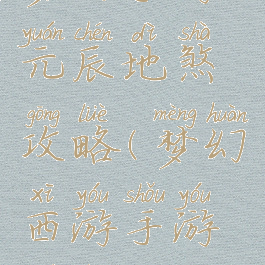 yuán chén dì shà
元辰地煞
gōng lüè mèng huàn
攻略(梦幻
xī yóu shǒu yóu
西游手游